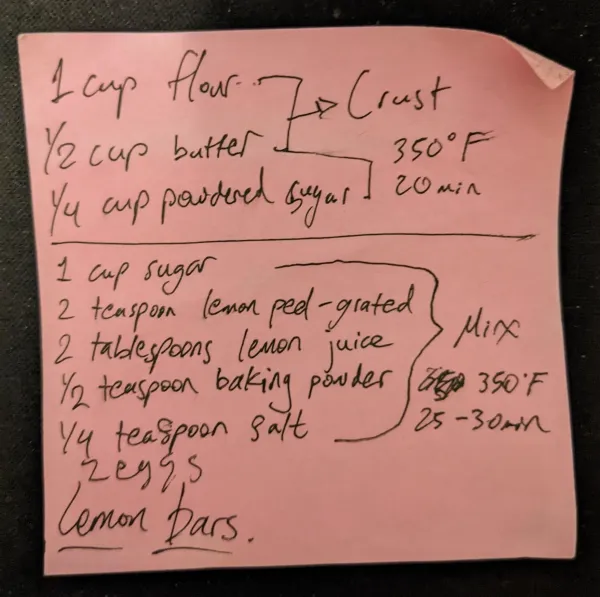 1 cup flour
Crust
1/2 cup butter
350°F
1/4 cup powdered sugar
20 min
1 cup sugar
2 teaspoon lemon peel-grated
2 tablespoons lemon juice
Mix
1/2 teaspoon baking powder
350°F
1/4 teaspoon salt
25-30min
2 eggs
Lemon bars.